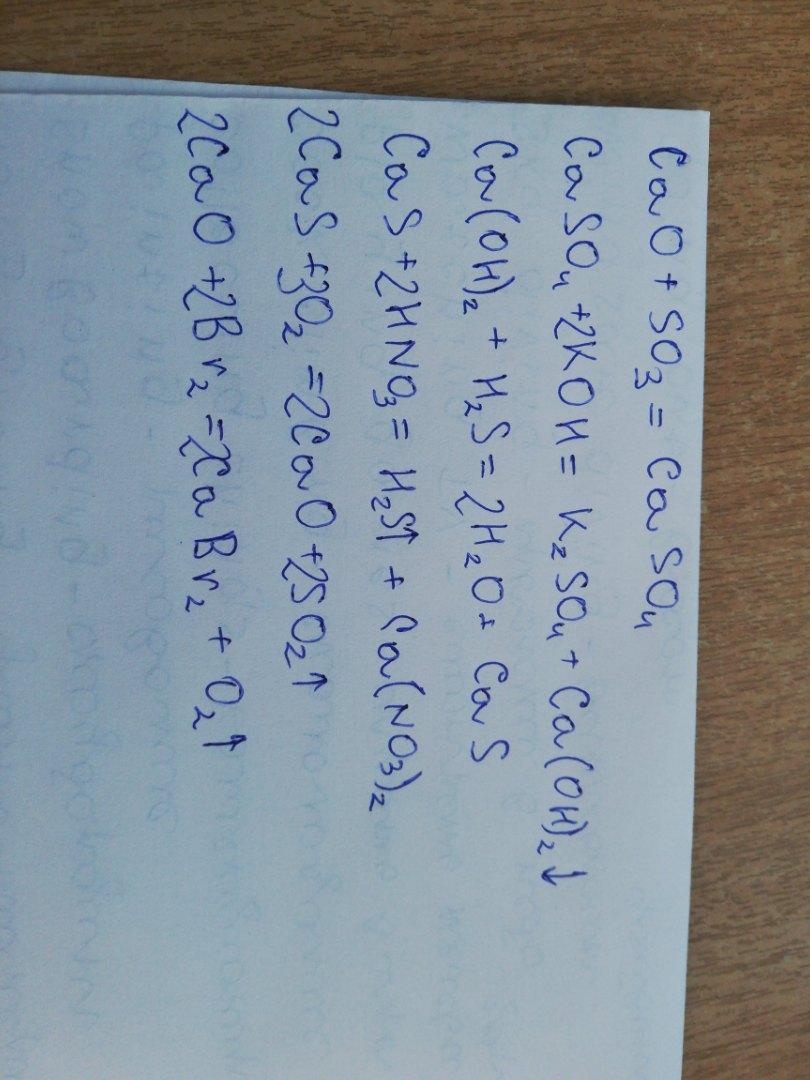 CaO + SO₃ = CaSO₄
CaSO₄ + 2KOH = K₂SO₄ + Ca(OH)₂↓
Ca(OH)₂ + H₂S = 2H₂O + CaS
CaS + 2HNO₃ = H₂S↑ + Ca(NO₃)₂
2CaS + 3O₂ = 2CaO + 2SO₂↑
2CaO + 2Br₂ = 2CaBr₂ + O₂↑